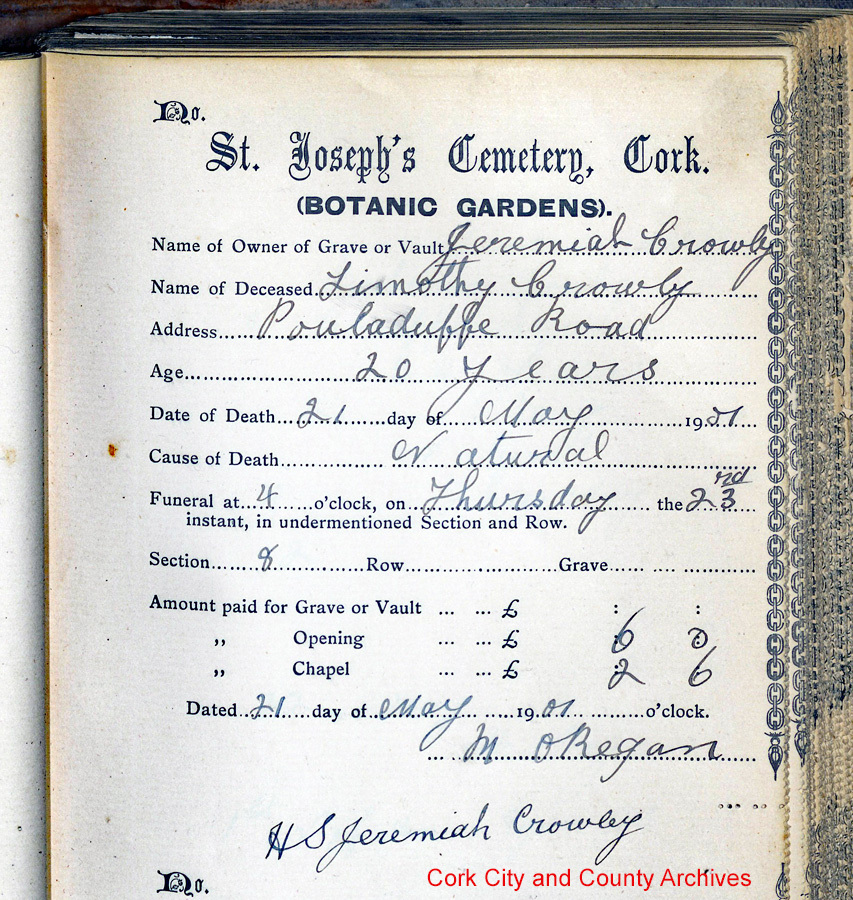 No.
St. Joseph's Cemetery, Cork.
(BOTANIC GARDENS).
Name of Owner of Grave or Vault Jeremiah Crowly
Name of Deceased Timothy Crowly
Address Pouladuffe Road
Age 20 years
Date of Death 21 day of May 1901
Cause of Death Natural
Funeral at 4 o'clock, on Thursday the 23rd
instant, in undermentioned Section and Row.
Section 8 Row Grave
Amount paid for Grave or Vault ... ... £ : :
,, Opening ... ... £ 6 0
,, Chapel ... ... £ 2 6
Dated 21 day of May 1901 o'clock.
M O Regan
H S Jeremiah Crowley
No.
Cork City and County Archives